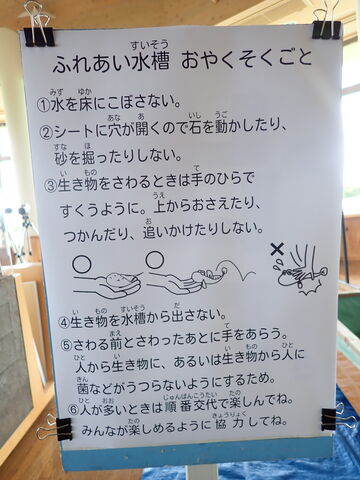 ふれあい水槽 おやくそくごと
①水を床にこぼさない。
②シートに穴が開くので石を動かしたり、
砂を掘ったりしない。
③生き物をさわるときは手のひらで
すくうように。上からおさえたり、
つかんだり、追いかけたりしない。
④生き物を水槽から出さない。
⑤さわる前とさわったあとに手をあらう。
人から生き物に、あるいは生き物から人に
菌などがうつらないようにするため。
⑥人が多いときは順番交代で楽しんでね。
みんなが楽しめるように協力してね。